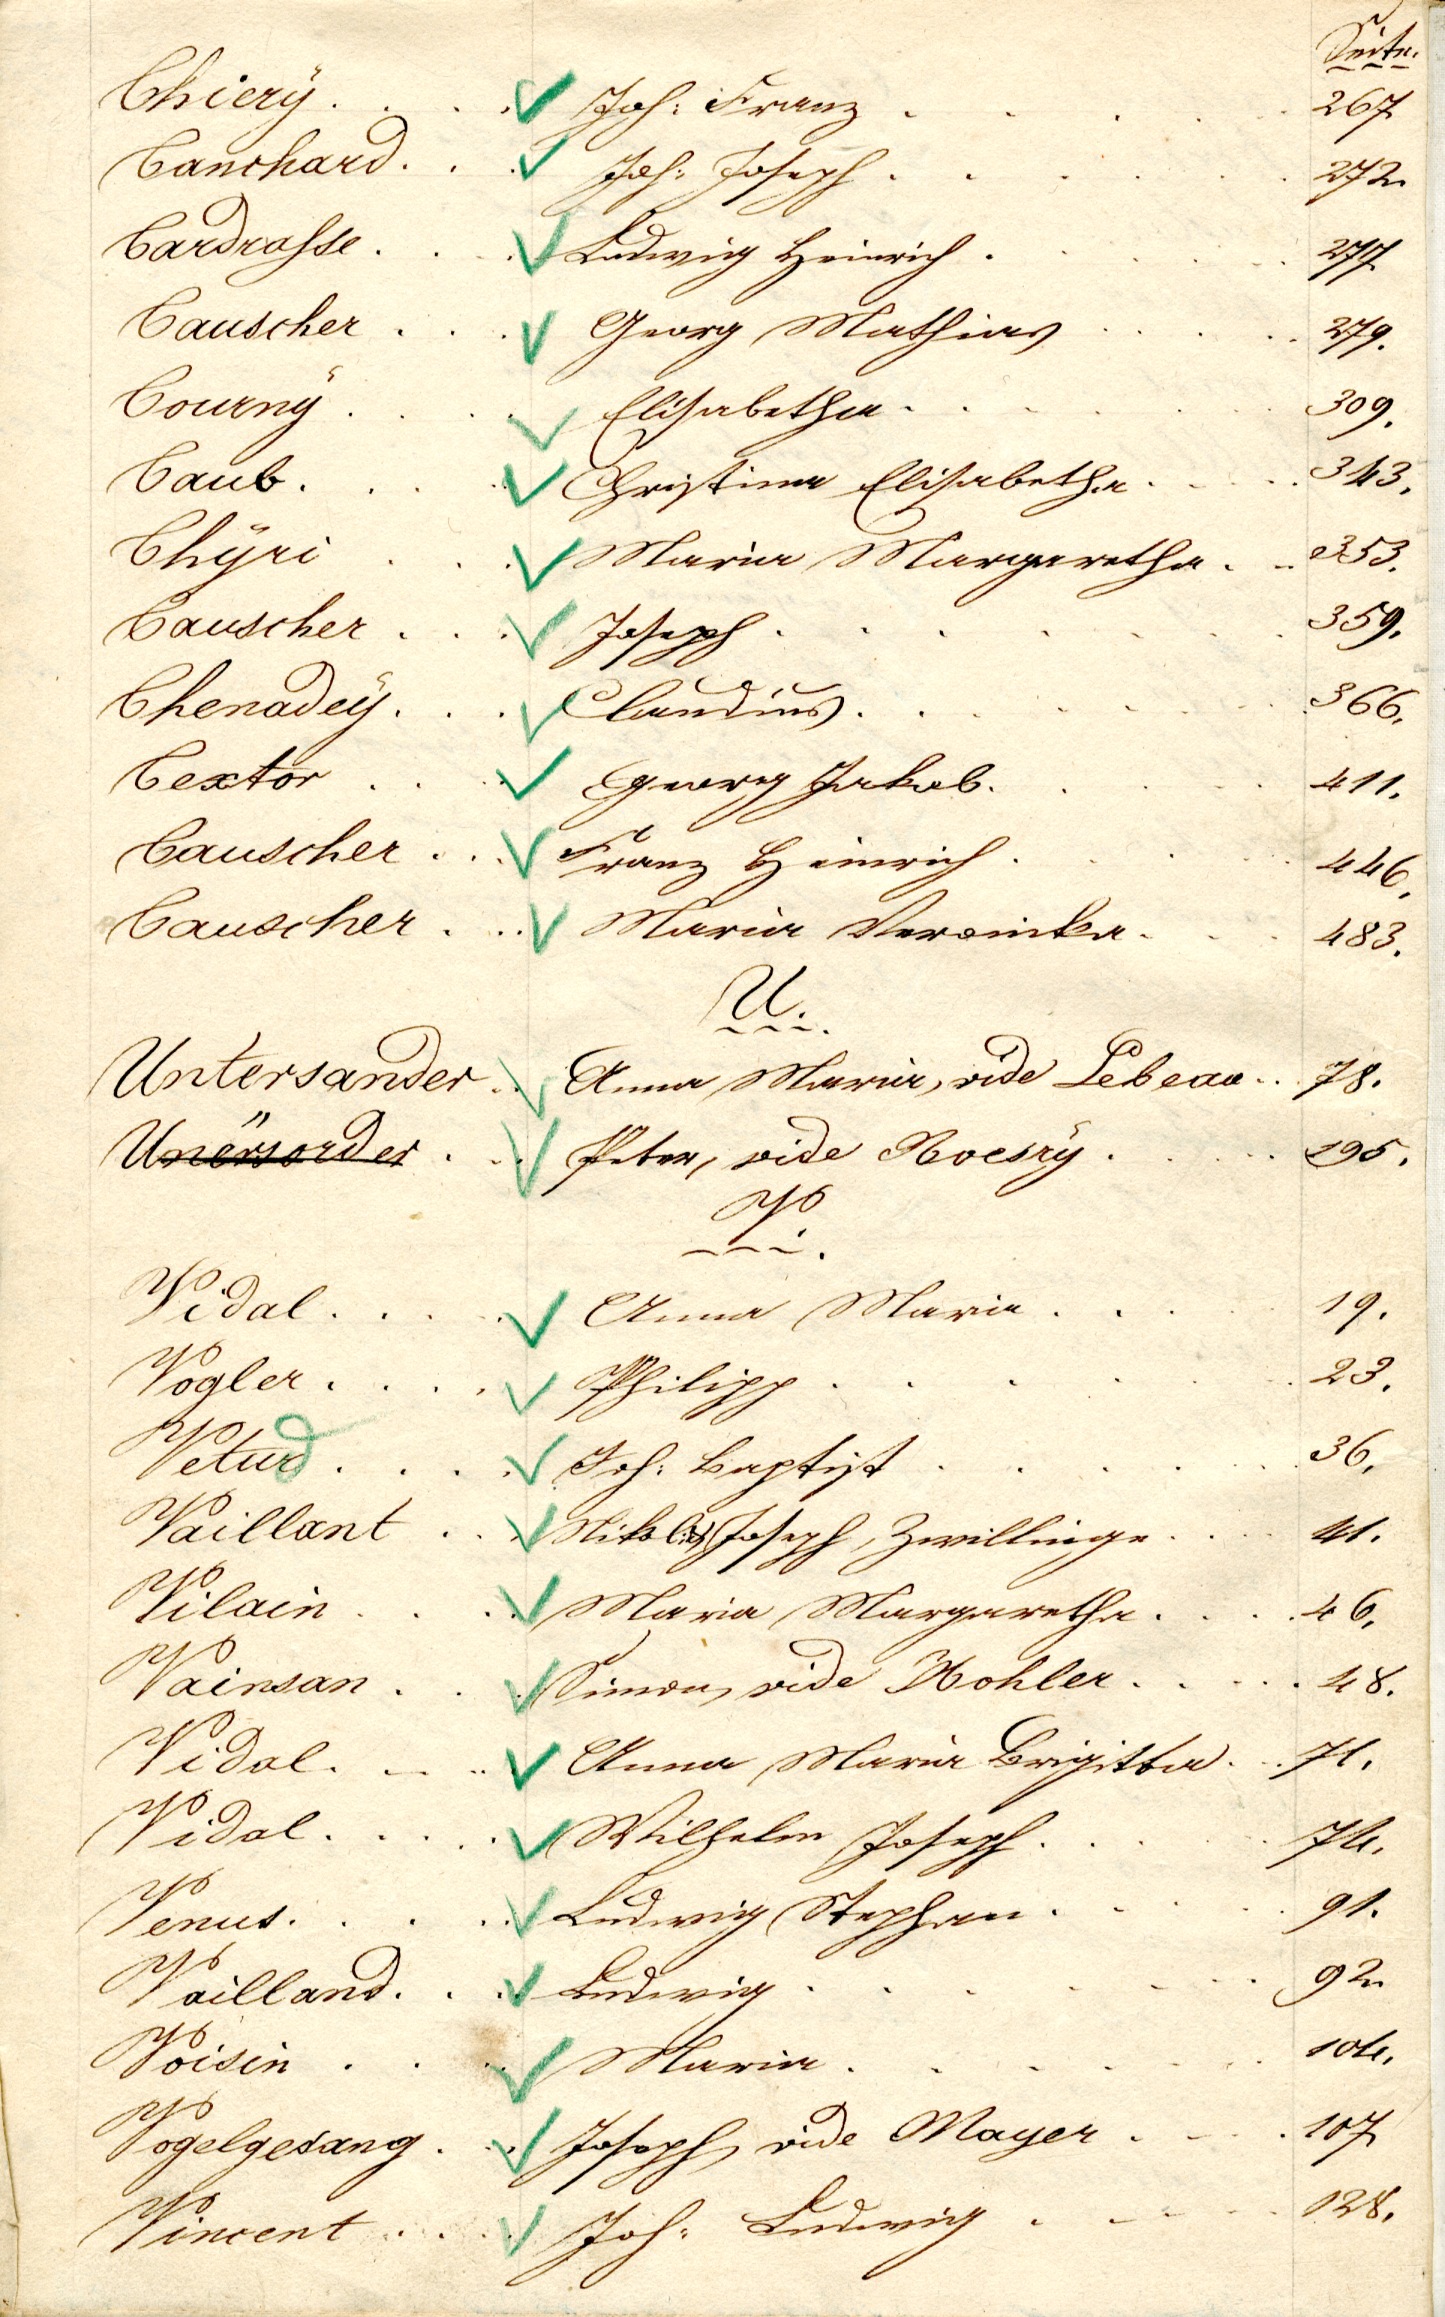 Seite.
Thierÿ. . . . Joh: Franz . . . . . 267
Tanchard. . . Joh: Joseph . . . . . 272.
Tardrasse . . . Ludwig Heinrich . . . . 277
Tauscher . . . Georg Mathias . . . . 279.
Tournÿ . . . . Elisabetha . . . . . 309.
Taub. . . . Christina Elisabetha . . . . 343.
Thÿri . . . Maria Margaretha . . 353.
Tauscher . . . Joseph . . . . . . 359.
Thenadeÿ. . . . Claudius . . . . . 366.
Textor . . . Georg Jakob. . . . . 411.
Tauscher . . . Franz Heinrich . . . . 446.
Tauscher . . . Maria Veronika. . . . 483.
U.
Untersander . . Anna Maria, vide Lebeau . . 78.
Unërsorder . . . Peter, vide Roesrÿ . . . . 195.
V.
Vidal . . . . Anna Maria . . . . 19.
Vogler . . . . Philipp . . . . . 23.
Veturd . . . . Joh: Baptist . . . . . 36.
Vaillant . . . Nikl: u Joseph, Zwillinge . . . 41.
Vilain . . . . Maria Margaretha . . . . 46.
Vainsan . . . Simon, vide Kohler . . . . . 48.
Vidal. . . . Anna Maria Brigitta . . . 71.
Vidal . . . . . Wilhelm Joseph . . . . 74.
Venus. . . . . Ludwig Stephan . . . . 91.
Vailland. . . . Ludwig . . . . . . 92.
Voisin . . . Maria . . . . . . 104.
Vogelgesang . . . Joseph, vide Mayer . . . . 107
Vincent . . . . Joh: Ludwig . . . . 128.